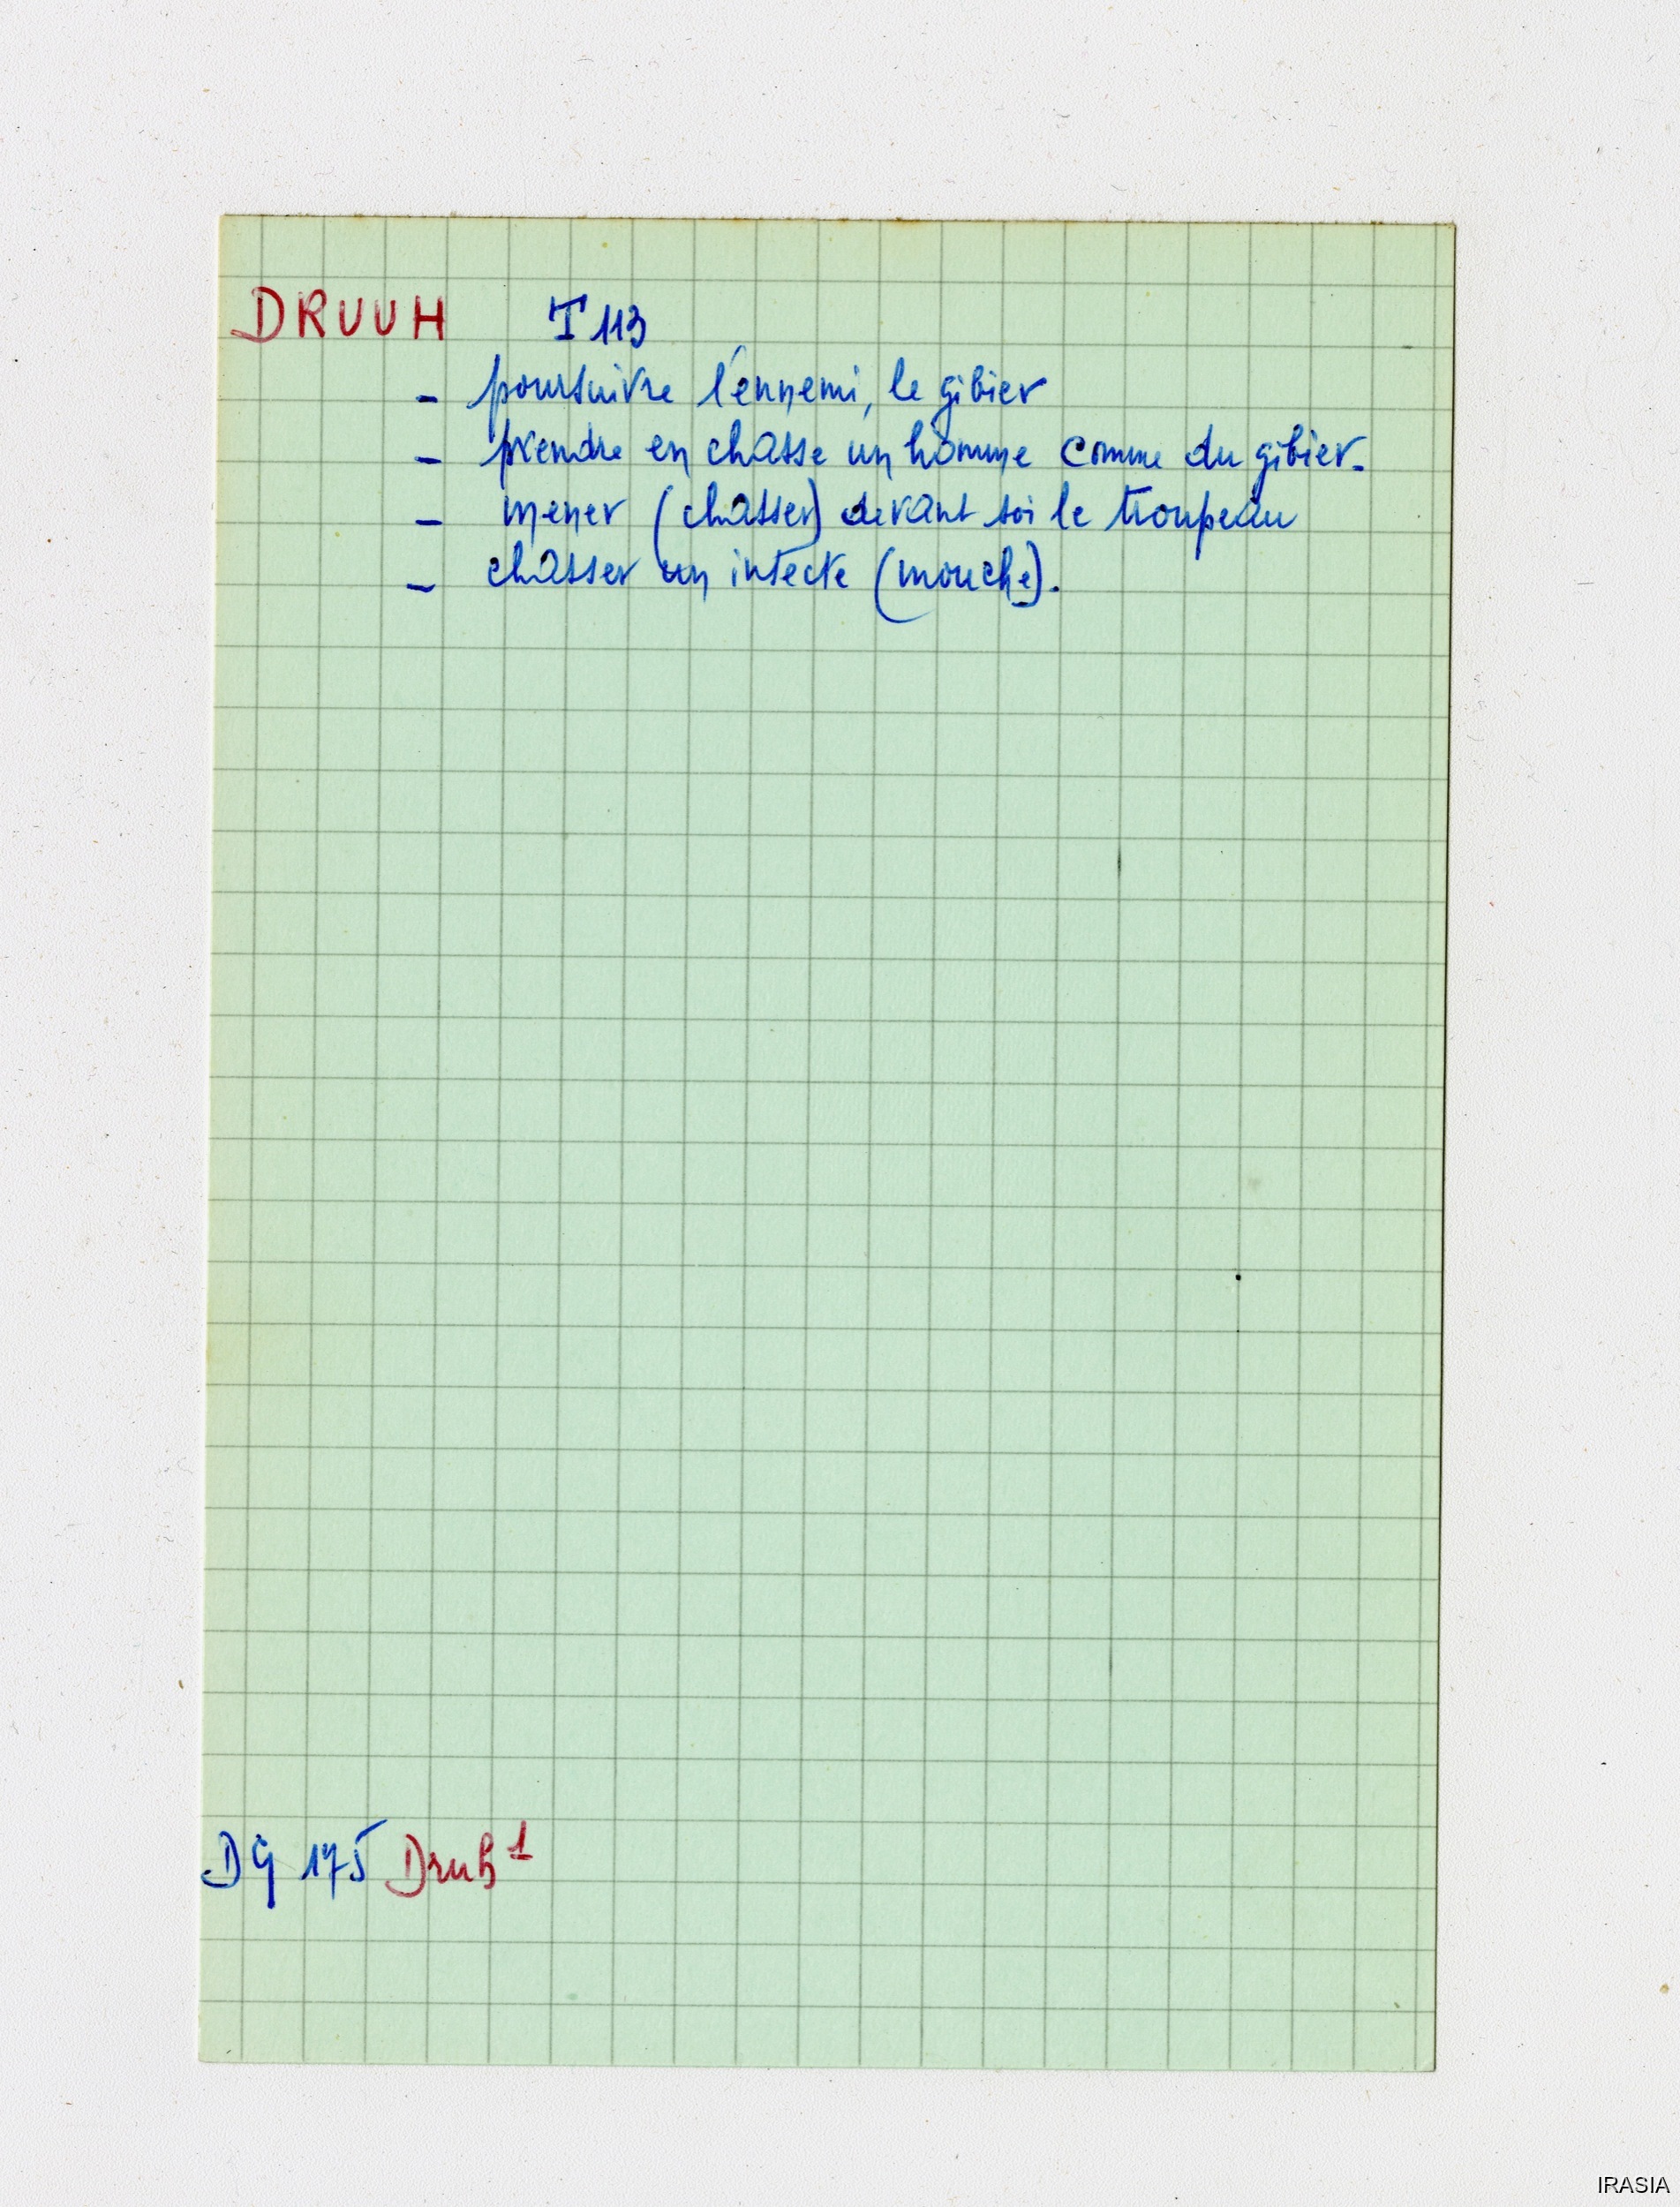 DRUUH T 113
- poursuivre l'ennemi, le gibier
- prendre en chasse un homme comme du gibier.
- mener (chasser) devant soi le troupeau
- chasser un insecte (mouche).
DG 175 Druh 1
IRASIA